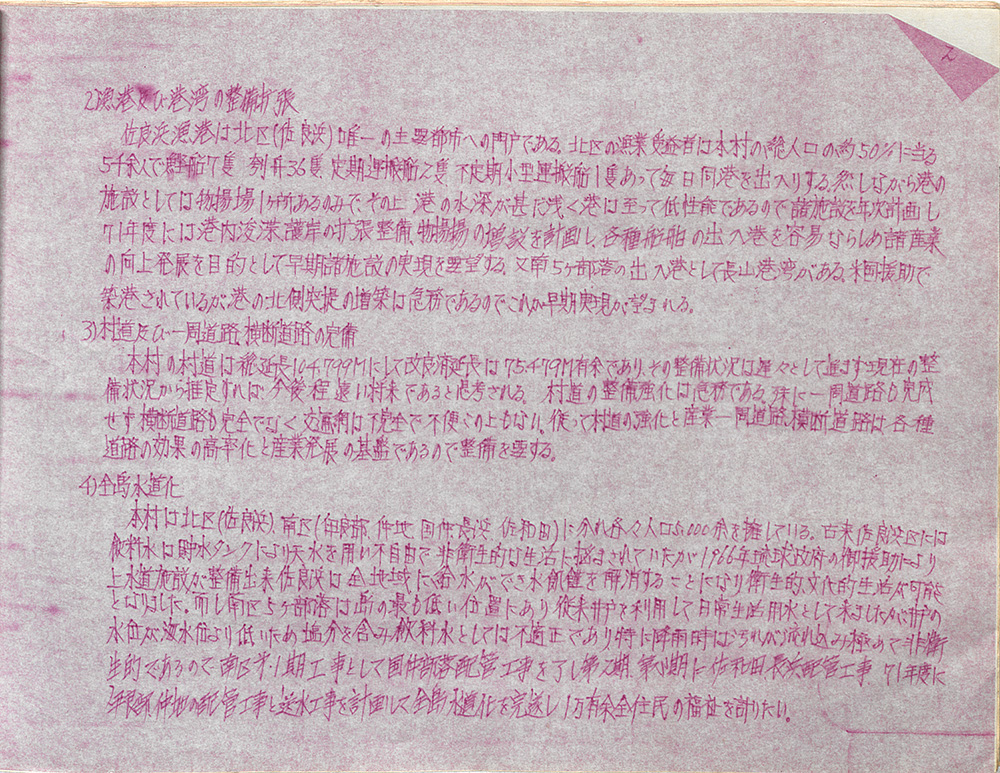 2
2)漁港及び港湾の整備拡張
佐良浜漁港は北区(佐良浜)唯一の主要都市への門戸である。北区の漁業受益者は本村の総人口の約50%に当る
5千余人で鰹船7隻 刳舟36隻 定期運搬船2隻 不定期小型運搬船1隻あって毎日同港を出入りする。然しながら港の
施設としては物揚場1ヶ所あるのみで、その上 港の水深が甚だ浅く港は至って低性命であるので諸施設を年次計画し
71年度には港内浚渫、護岸の拡張整備、物揚場の増設を計画し、各種船舶の出入港を容易ならしめ諸産業
の向上発展を目的として早期諸施設の実現を要望する。又南5ヶ部落の出入港として長山港湾がある。米国援助で
築港されているが、港の北側突堤の増築は急務であるのでこれが早期実現が望まれる。
3)村道及び一周道路、横断道路の完備
本村の村道は総延長104.799Mにして改良済延長は75.479M有余であり、その整備状況は遅々として進まず現在の整
備状況から推定すれば、今後程遠い将来であると思考される。 村道の整備強化は急務である。殊に一周道路も完成
せず横断道路も完全でなく交通網は不完全で不便この上もない。依って村道の強化と産業一周道路、横断道路は各種
道路の効果の高率化と産業発展の基盤であるので整備を要する。
4)全島水道化
本村は北区(佐良浜)、南区(伊良部、仲地、国仲、長浜、佐和田)に分れ各々人口5,000余を擁している。古来佐良浜区には
飲料水は貯水タンクにより天水を用い不自由で非衛生的な生活に悩まされていたが1966年琉球政府の御援助により
上水道施設が整備出来佐良浜は全地域に給水ができ水飢饉を解消することになり衛生的、文化的生活が可能
となりました。而し南区5ヶ部落は島の最も低い位置にあり従来井戸を利用して日常生活用水として来ましたが井戸の
水位が海水位より低いため塩分を含み飲料水としては不適正であり特に降雨時は汚れが流れ込み極めて非衛
生的であるので南区第1期工事として国仲部落配管工事を了し第2期、第3期に佐和田、長浜配管工事 71年度に
伊良部、仲地の配管工事と送水工事を計画して全島水道化を完遂し1万有余全住民の福祉を計りたい。